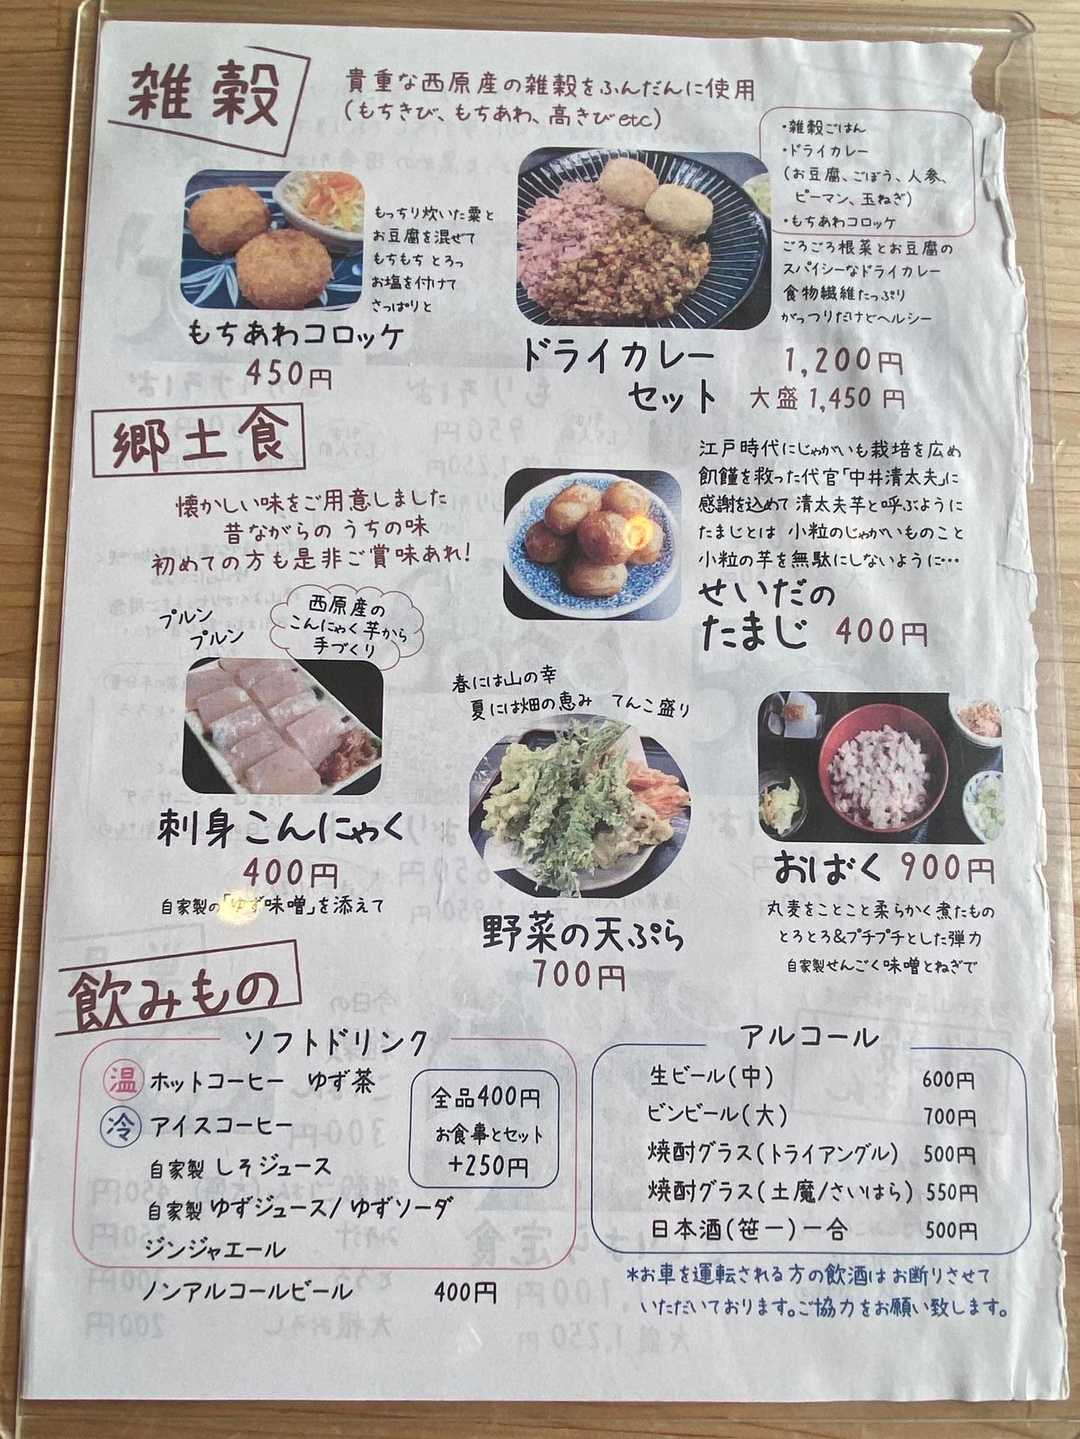 雑穀
貴重な西原産の雑穀をふんだんに使用
(もちきび、もちあわ、高きびetc)
・雑穀ごはん
・ドライカレー
(お豆腐、ごぼう、人参、
ピーマン、玉ねぎ)
・もちあわコロッケ
もっちり炊いた粟と
お豆腐を混ぜて
もちもち とろっ
お塩を付けて
さっぱりと
もちあわコロッケ
450円
ごろごろ根菜とお豆腐の
スパイシーなドライカレー
食物繊維たっぷり
がっつりだけどヘルシー
ドライカレー
セット
1,200円
大盛1,450円
郷土食
懐かしい味をご用意しました
昔ながらの うちの味
初めての方も是非ご賞味あれ!
江戸時代にじゃがいも栽培を広め
飢饉を救った代官「中井清太夫」に
感謝を込めて 清太夫芋と呼ぶように
たまじとは 小粒のじゃがいものこと
小粒の芋を無駄にしないように…
せいだの
たまじ 400円
プルン
プルン
西原産の
こんにゃく芋から
手づくり
刺身こんにゃく
400円
自家製の「ゆず味噌」を添えて
春には山の幸
夏には畑の恵み てんこ盛り
野菜の天ぷら
700円
おばく 900円
丸麦をことこと柔らかく煮たもの
とろとろ&プチプチとした弾力
自家製せんごく味噌とねぎで
飲みもの
ソフトドリンク
温 ホットコーヒー ゆず茶
冷 アイスコーヒー
自家製 しそジュース
自家製 ゆずジュース/ゆずソーダ
ジンジャエール
ノンアルコールビール 400円
全品400円
お食事とセット
+250円
アルコール
生ビール(中) 600円
ビンビール(大) 700円
焼酎グラス(トライアングル) 500円
焼酎グラス(土魔/さいはら) 550円
日本酒(笹一)一合 500円
*お車を運転される方の飲酒はお断りさせて
いただいております。ご協力をお願い致します。